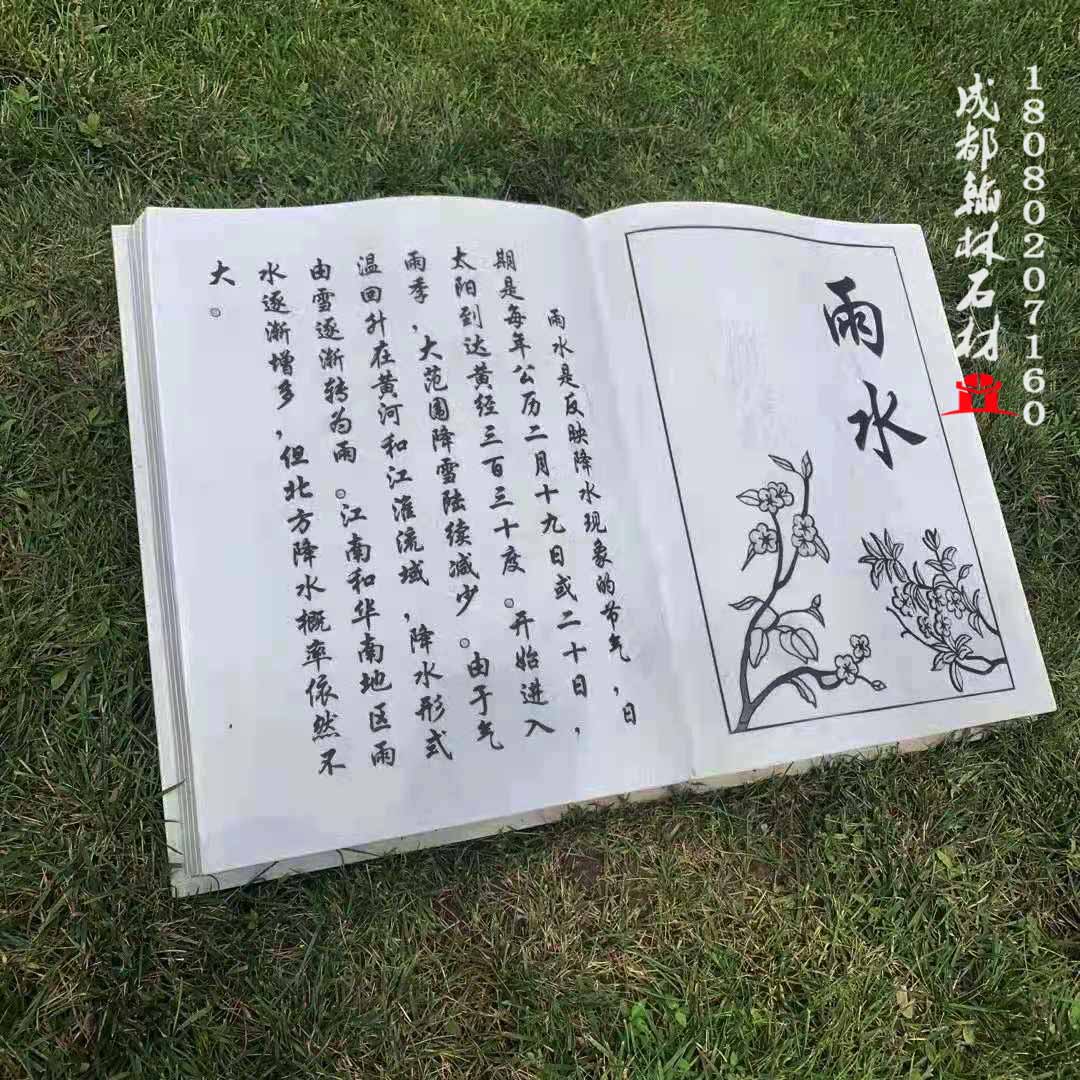 雨水
雨水是反映降水现象的节气，日
期是每年公历二月十九日或二十日，
太阳到达黄经三百三十度。开始进入
雨季，大范围降雪陆续减少。由于气
温回升在黄河和江淮流域，降水形式
由雪逐渐转为雨。江南和华南地区雨
水逐渐增多，但北方降水概率依然不
大。
18080207160
成都翰林石材